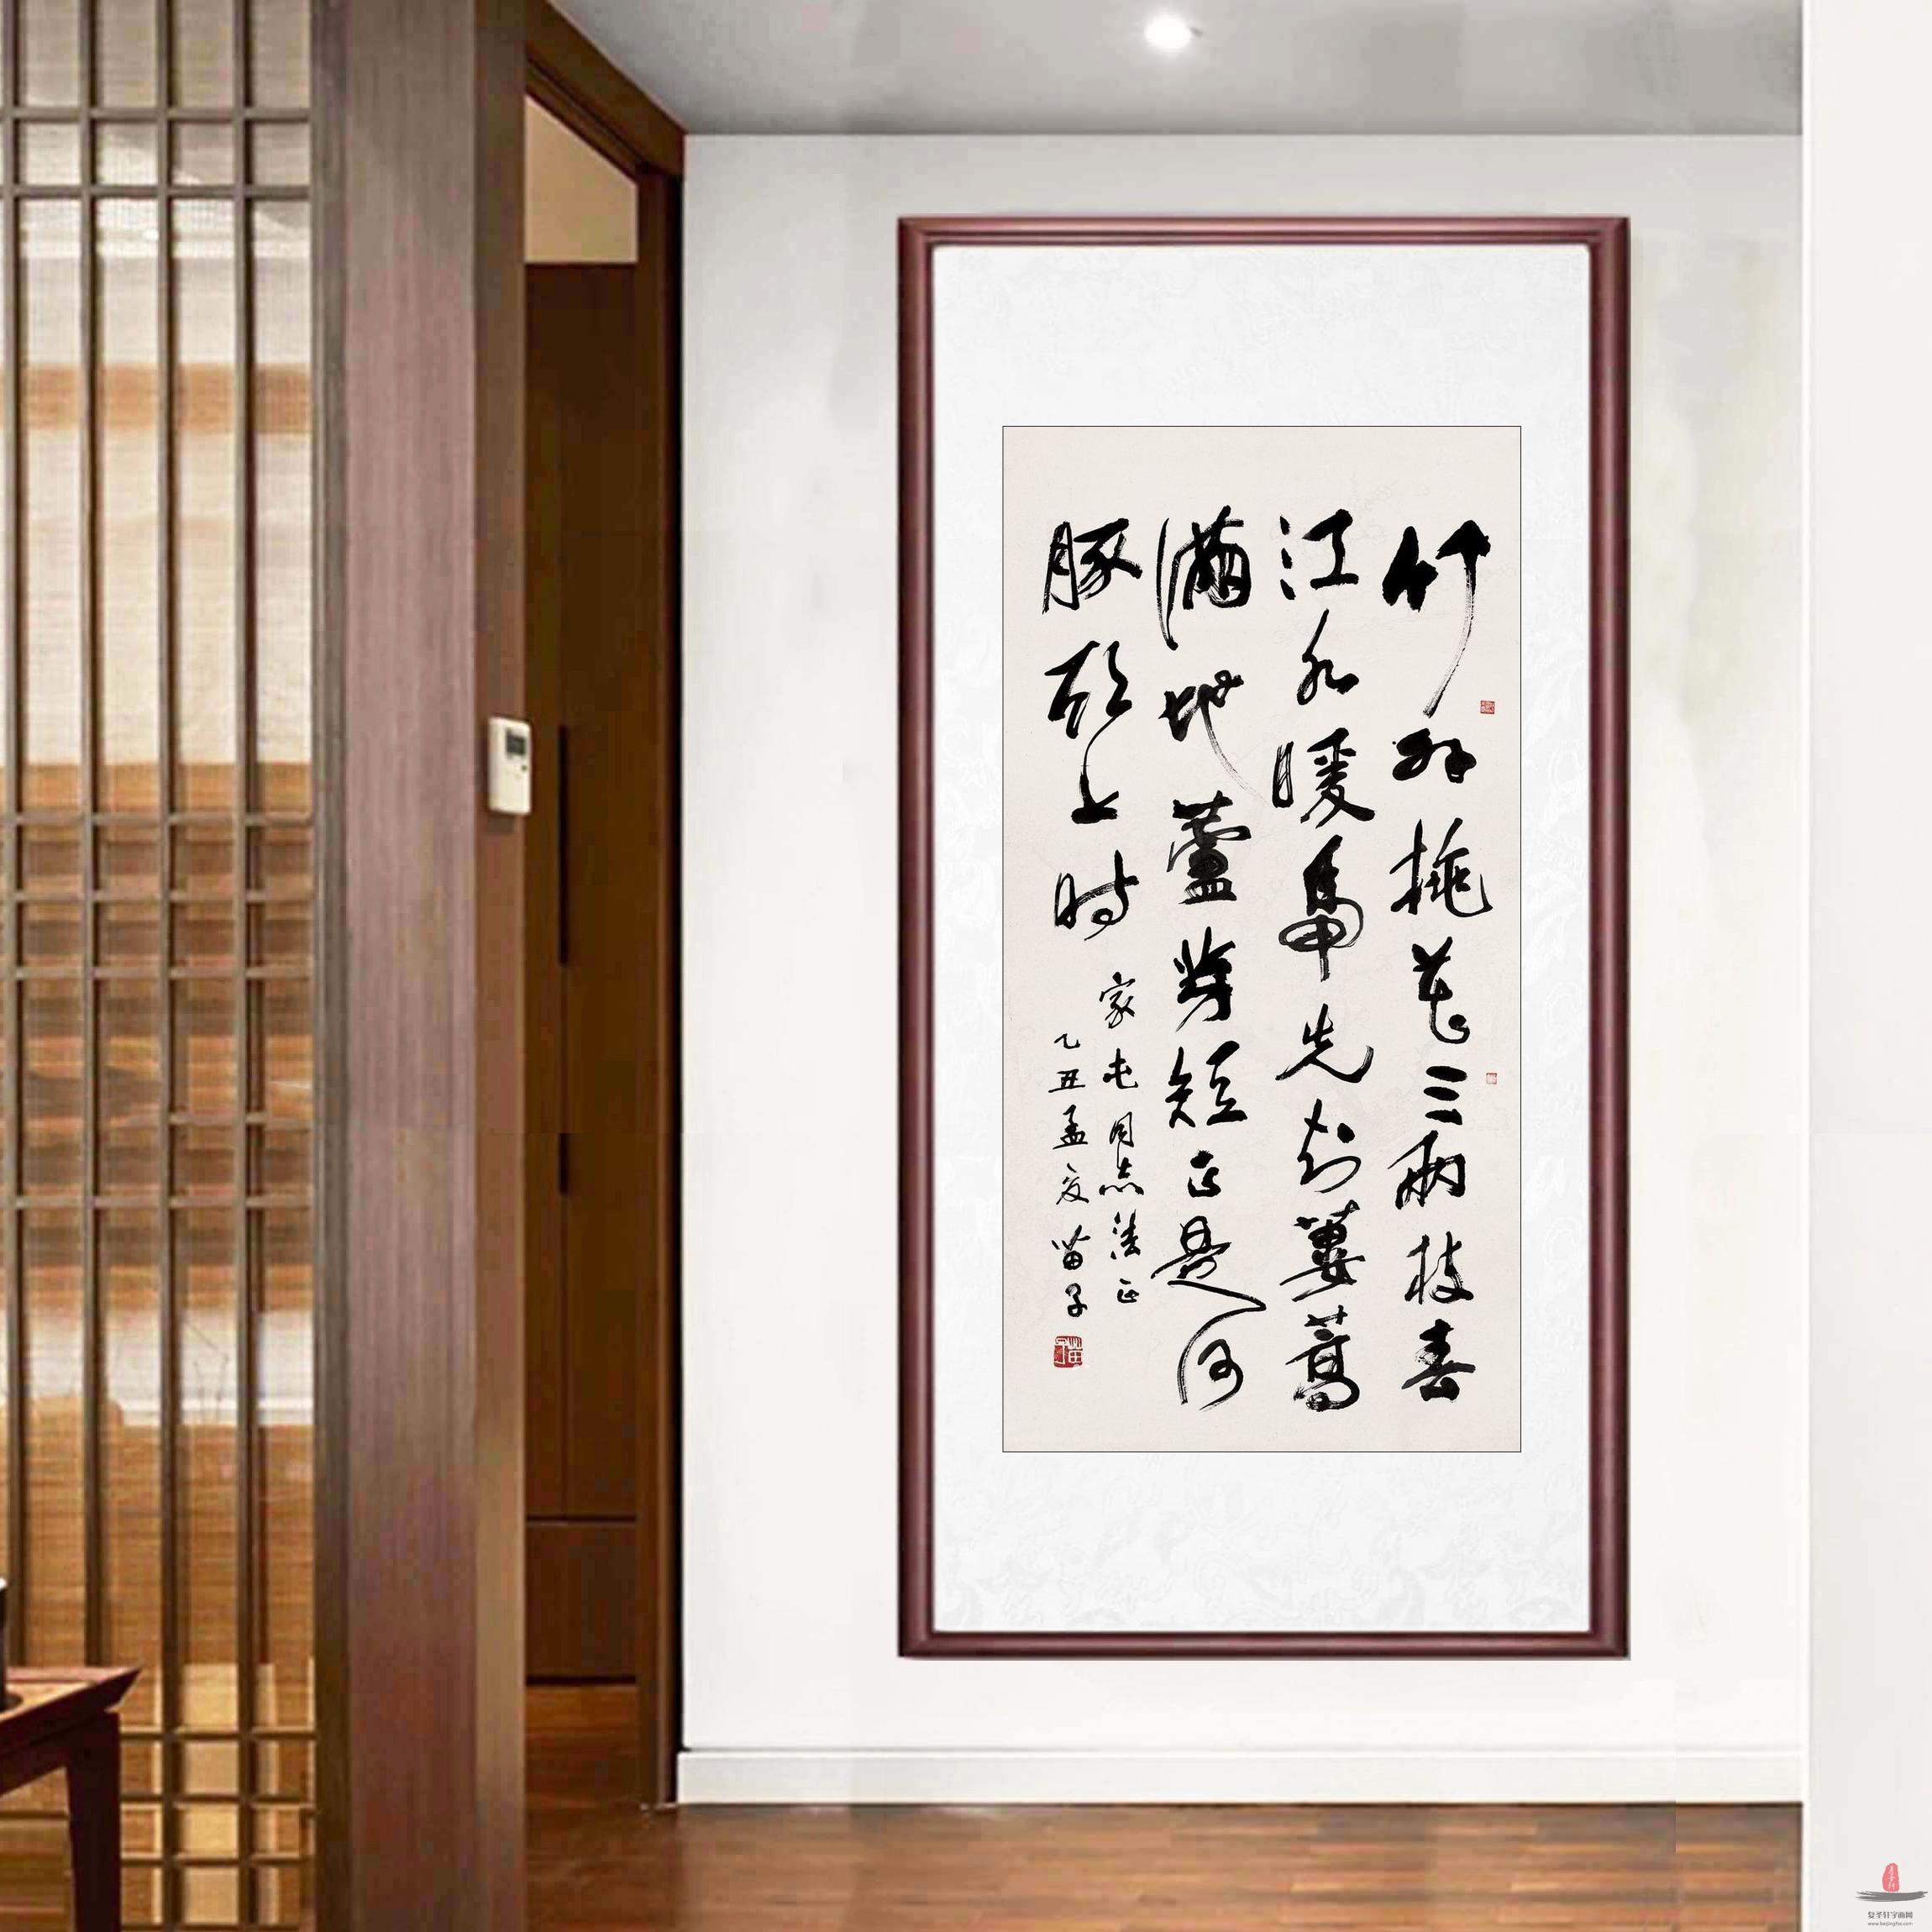 竹外桃花三兩枝春
江水暖鴨先知蔞蒿
滿地蘆芽短正是河
豚欲上时
家屯同志法正
乙丑孟夏苗子
复圣轩字画网